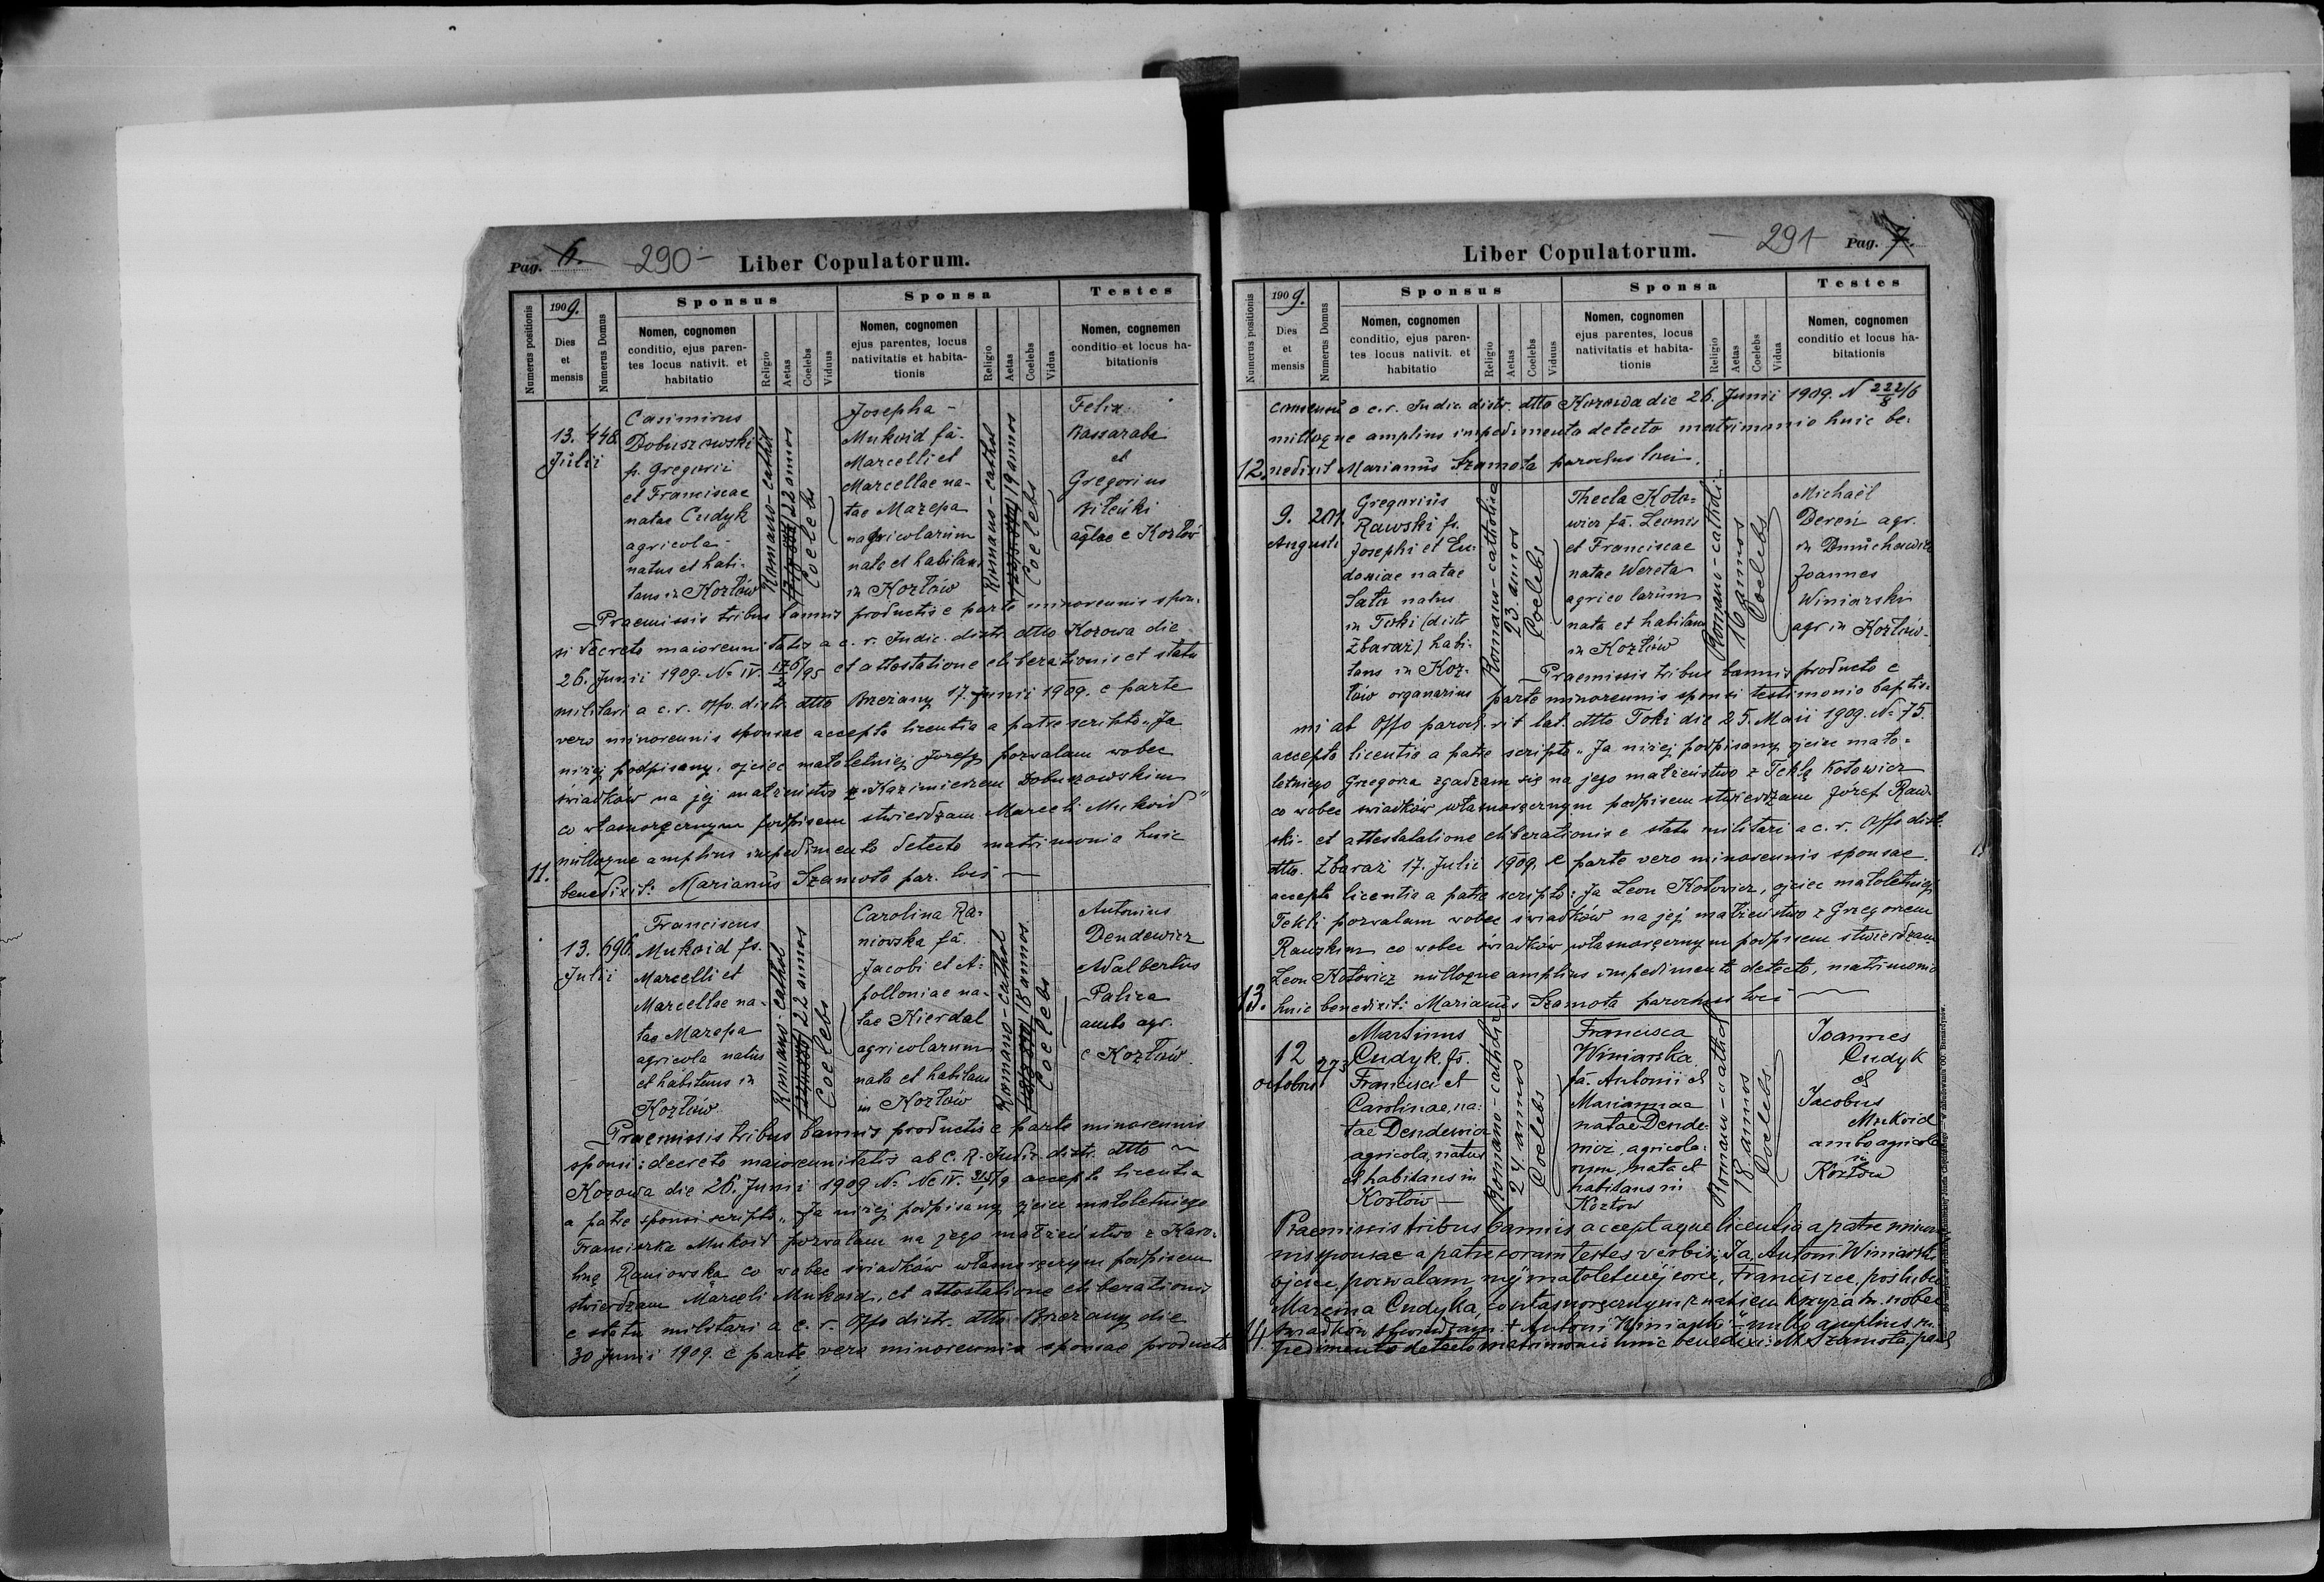 Pag. 6. 290 Liber Copulatorum.
Numerus positionis
1909.
Dies
et
mensis
Numerus Domus
Sponsus
Nomen, cognomen
conditio, ejus paren-
tes locus nativit. et
habitatio
Religio
Aetas
Coelebs
Viduus
Sponsa
Nomen, cognomen
ejus parentes, locus
nativitatis et habita-
tionis
Religio
Aetas
Coelebs
Vidua
Testes
Nomen, cognemen
conditio et locus ha-
bitationis
13.
Julii
448.
Casimirus
Dobuszowski
fs. Gregorii
et Franciscae
natae Cudyk
agricola
natus et habi-
tans in Kozłów
Romano-cathol
22 annos
Coelebs
Josepha
Mukoid fa.
Marcelli et
Marcellae na-
tae Mazepa
agricolarum
nata et habitans
in Kozłów
Romano-cathol
19 annos
Coelebs
Felix
Bassaraba
et
Gregorius
e Kozłów
Praemissis tribus bannis productis e parte minorennis spon-
si decreto maiorennitatis a c. r. Judic. distr. dtto Kozowa die
26. Junii 1909. No IV. 176/2/95 et attestatione eliberationis et statu
militari a c. r. Offo. distr. dtto Brzeżany 17. Junii 1909. e parte
vero minorennis sponsae accepta licentia a patre scripto „Ja
niżej podpisany, ojciec małoletniej Józefy pozwalam wobec
świadków na jej małżeństwo z Kazimierzem Dobuszowskim
co własnoręcznym podpisem stwierdzam Marceli Mukoid"
nulloque amplius impedimento detecto matrimonio huic
11. benedixit: Marianus Szamota par. loci
13.
Julii
696.
Franciscus
Mukoid fs.
Marcelli et
Marcellae na-
tae Mazepa
agricola natus
et habitans in
Kozłów
Romano-cathol
22 annos
Coelebs
Carolina Ra-
niowska fa.
Jacobi et A-
polloniae na-
tae Nierdal
agricolarum
nata et habitans
in Kozłów
Romano-cathol
18 annos
Coelebs
Antonius
Dendewicz
Adalbertus
Palica
ambo agr.
e Kozłów
Praemissis tribus bannis productis e parte minorennis
sponsi: decreto maiorennitatis ab C. R. Judic. distr. dtto
Kozowa die 26. Junii 1909 No Nc IV. accepta licentia
a patre sponsi scripto „Ja niżej podpisany ojciec małoletniego
Franciszka Mukoid pozwalam na jego małżeństwo z Karo-
liną Raniowska co wobec świadków własnoręcznym podpisem
stwierdzam Marceli Mukoid, et attestatione eliberationis
e statu militari a c. r. Offo distr. dtto Brzeżany die
30 Junii 1909. e parte vero minorennis sponsae producto
Liber Copulatorum. 291 Pag. 7.
Numerus positionis
1909.
Dies
et
mensis
Numerus Domus
Sponsus
Nomen, cognomen
conditio, ejus paren-
tes locus nativit. et
habitatio
Religio
Aetas
Coelebs
Viduus
Sponsa
Nomen, cognomen
ejus parentes, locus
nativitatis et habita-
tionis
Religio
Aetas
Coelebs
Vidua
Testes
Nomen, cognomen
conditio et locus ha-
bitationis
consensu a c. r. Judic. distr. dtto Kozowa die 26. Junii 1909. N 222/8/6
nulloque amplius impedimento detecto matrimonio huic be-
12. nedixit Marianus Szamota parochus loci.
9.
Augusti
201.
Gregorius
Rawski fs.
Josephi et Eu-
doxiae natae
Sata natus
in Toki (distr
Zbaraż) habi-
tans in Koz-
łów organarius
Romano-catholica
23. annos
Coelebs
Thecla Koto-
wicz fa. Leonis
et Franciscae
natae Wereta
agricolarum
nata et habitans
in Kozłów
Romano-catholi
16 annos
Coelebs
Michaël
Dereń agr.
in Dmuchawiec
Joannes
Winiarski
agr in Kozłów
Praemissis tribus bannis producto e
parte minorennis sponsi testimonio baptis-
mi ab Offo paroch. rit. lat. dtto Toki die 25. Maii 1909. No 75.
accepta licentia a patre scripto „Ja niżej podpisany ojciec mało-
letniego Grzegorza zgadzam się na jego małżeństwo z Teklą Kotowicz
co wobec świadków własnoręcznym podpisem stwierdzam Józef Raw-
ski- et attestatione eliberationis e statu militari a c. r. Offo distr.
dtto. Zbaraż 17. Julii 1909. e parte vero minorennis sponsae
accepta licentia a patre scripto: Ja Leon Kotowicz, ojciec małoletniej
Tekli pozwalam wobec świadków na jej małżeństwo z Grzegorzem
Rawskim co wobec świadków własnoręcznym podpisem stwierdzam
Leon Kotowicz nulloque amplius impedimento detecto, matrimonio
13. huic benedixit: Marianus Szamota parochus loci
12
octobris
273
Martinus
Cudyk fs.
Francisci et
Carolinae, na-
tae Dendewicz
agricola, natus
et habitans in
Kozłów
Romano-catholic
24 annos
Coelebs
Francisca
Winiarska
fa. Antonii et
Mariannae
natae Dende-
wicz, agricola-
rum, nata et
habitans in
Kozłow
Romano-cathol
18 annos
Coelebs
Joannes
Cudyk
et
Jacobus
Mukoid
ambo agricolae
in
Kozłow
Praemissis tribus bannis acceptaque licentia a patre minoren
nis sponsae a patre coram testes verbis: Ja, Antoni Winiarski
ojciec pozwalam mej małoletniej corce, Franciszce, poślubić
Marcina Cudyka, co własnoręcznym znakiem krzyża św. wobec
świadków stwierdzam + Antoni Winiarski - nullo amplius im-
14. pedimento detecto matrimonio huic benedixi: M. Szamota par. l